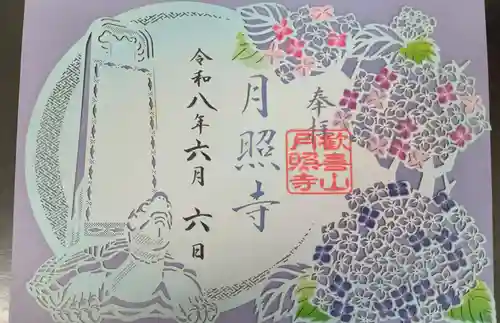 奉拝
月照寺
令和八年六月六日
歓喜山
月照寺